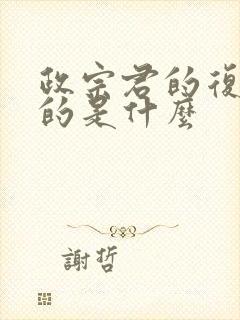 政宗君的復
的是什麼
謝哲